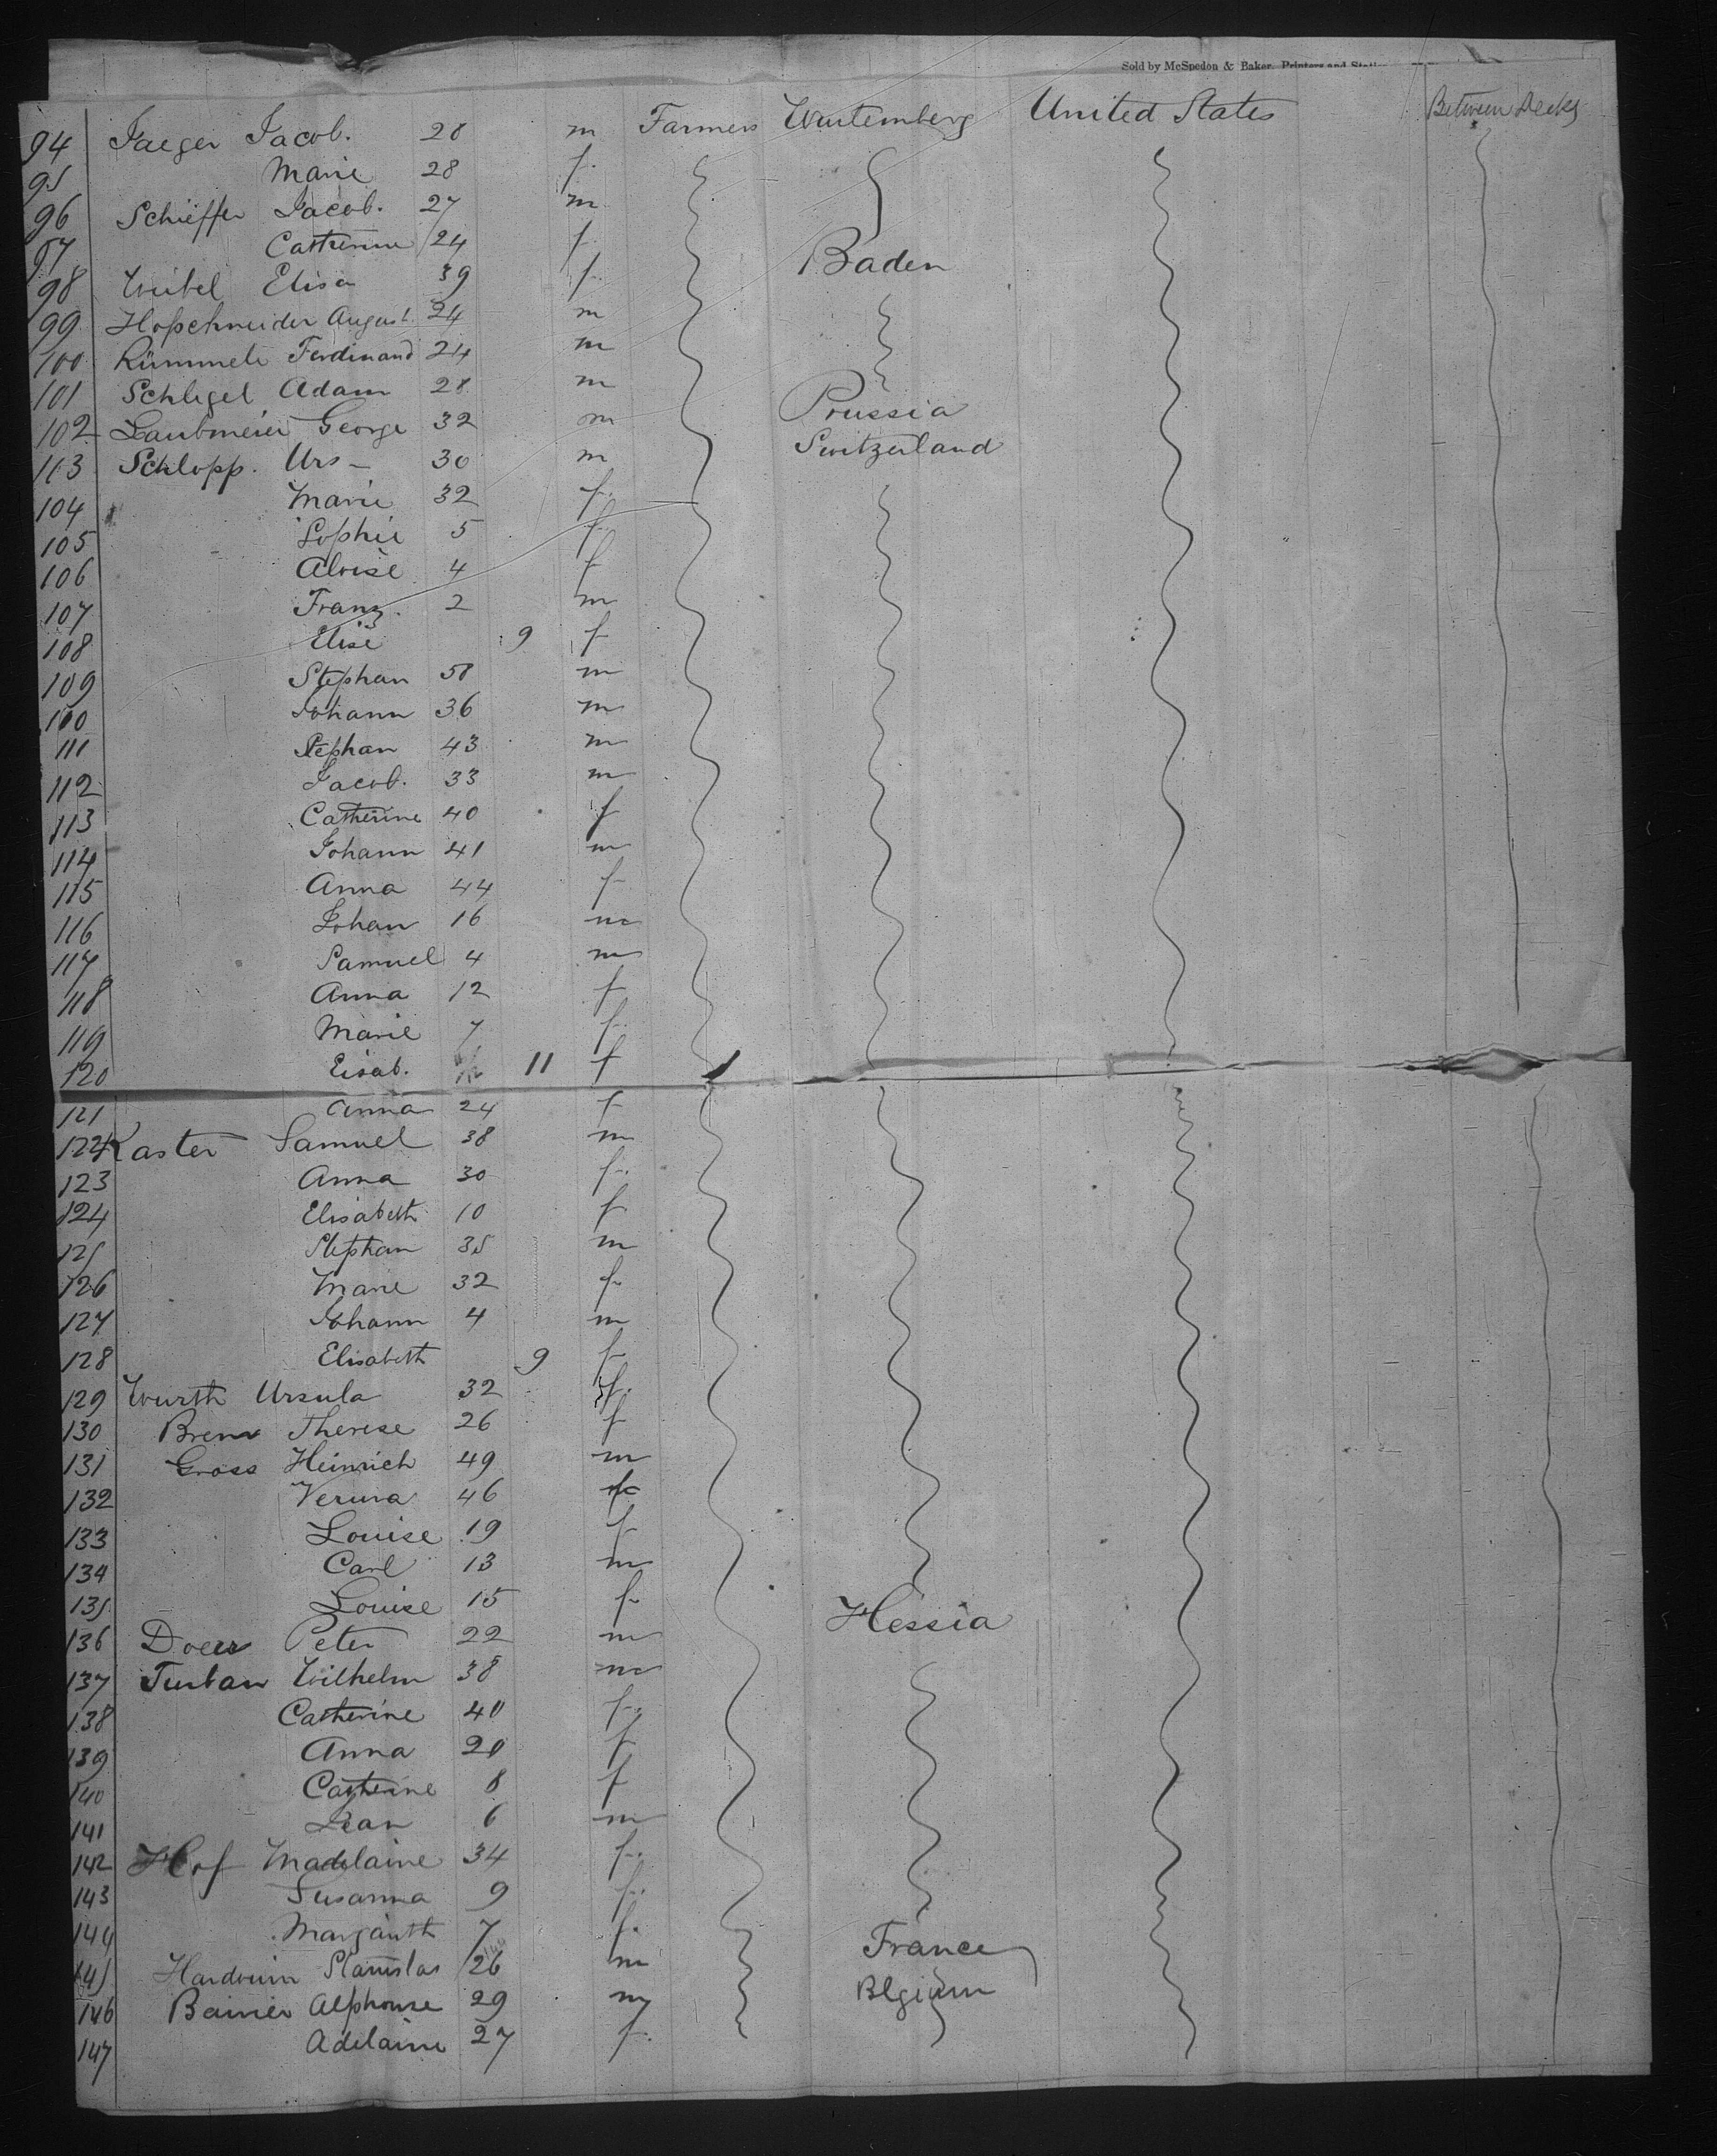 Sold by McSpedon & Baker, Printers and
94 Jaeger Jacob. 28 m Farmers Wurtemberg United States Between Decks
95 Marie 28 f.
96 Schieffer Jacob. 27 m
97 Catherine 24 f.
98 Weibel Elisa 39 f. Baden
99 Hofschneider August. 24 m
100 Ferdinand 24 m
101 Schlegel Adam 28 m
102 Laubmeier George 32 m Prussia
113 Schlopp. Urs - 30 m Switzerland
104 Marie 32 f.
105 Sophie 5 f
106 Aloise 4 f
107 Franz. 2 m
108 Elise 9 f
109 Stephan 58 m
110 Johann 36 m
111 Stephan 43 m
112 Jacob. 33 m
113 Catherine 40 f
114 Johann 41 m
115 Anna 44 f
116 Johan 16 m
117 Samuel 4 m
118 Anna 12 f
119 Marie 7 f.
120 Eisab. 11 f
121 Anna 24 f
122 Kaster Samuel 38 m
123 Anna 30 f.
124 Elisabeth 10 f
125 Stephan 35 m
126 Marie 32 f
127 Johann 4 m
128 Elisabeth 9 f
129 Wurth Ursula 32 f.
130 Therese 26 f
131 Gross Heinrich 49 m
132 Verena 46 f
133 Louise 19 f
134 Carl 13 m
135 Louise 15 f
136 Peter 22 m Hessia
137 Turban Wilhelm 38 m
138 Catherine 40 f.
139 Anna 20 f
140 Catherine 8 f
141 Jean 6 m
142 Hof Madelaine 34 f.
143 Susanna 9 f.
144 Margareth 7 f.
145 Hardouin Stanislas 26 m France
146 Bainier Alphonse 29 m Blgium
147 Adelaine 27 f.